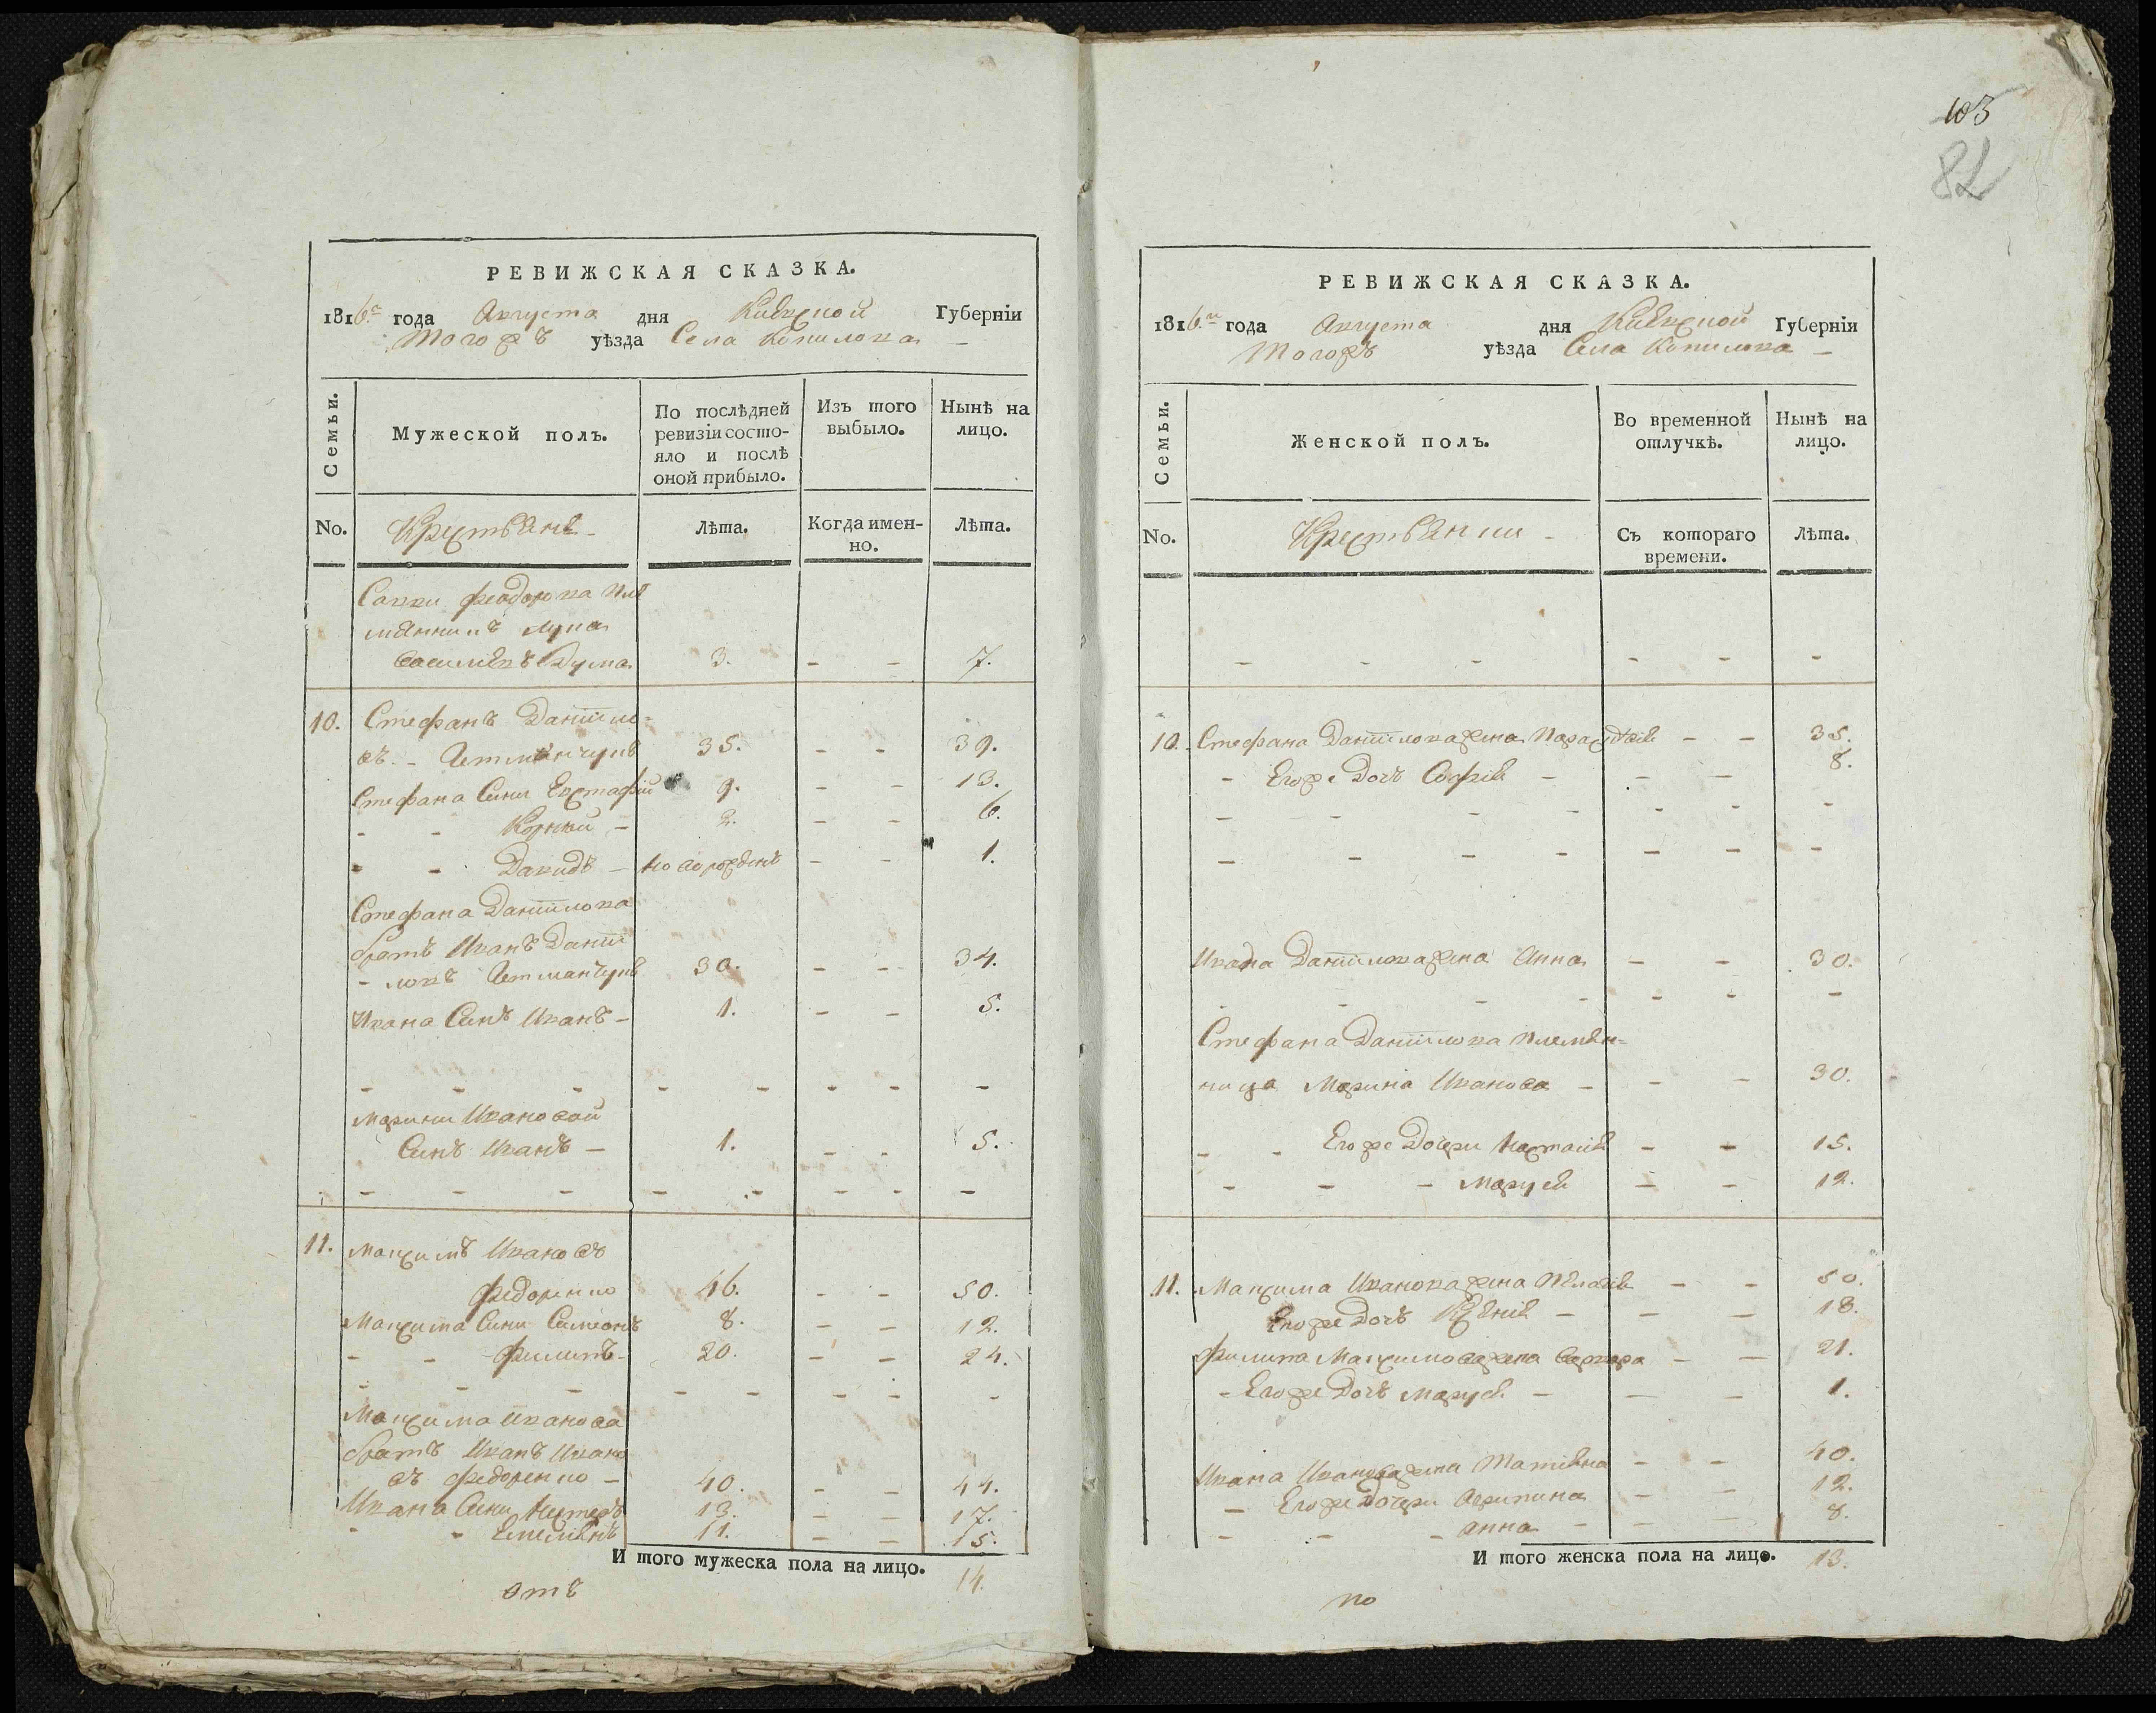 РЕВИЖСКАЯ СКАЗКА.
1816го года Августа дня Кіевской Губерніи
Тогожъ уѣзда Села Копилова
Семьи.
Мужеской полъ.
По послѣдней ревизіи состо-
яло и послѣ
оной прибыло.
Изъ того выбыло.
Нынѣ на лицо.
No.
Крестьяне
Лѣта.
Когда имен-
но.
Лѣта.
Савки Феодорова пле
мянникъ Лука
Василіевъ Дума 3. - - 7.
10. Стефанъ Даніило-
въ - Гетманчукъ 35. - - 39.
Стефана Сини Евстафій 9. - - 13.
- - Корнѣй - 2. - - 6.
- - Давидъ - новорожденъ - - 1.
Стефана Даніилова
братъ Иванъ Даніи
- ловъ Гетманчукъ 30. - - 34.
Ивана Синъ Иванъ - 1. - - 5.
- - - - - - - -
Марини Ивановой
Синъ Иванъ - 1. - - 5.
- - - - - - - -
11. Максимъ Ивановъ
Федоренко 46. - - 50.
Максима Сини Симеонъ 8. - - 12.
- - Филипъ - 20. - - 24.
- - - - - - - -
Максима Иванова
братъ Иванъ Ивано
въ Федоренко - 40. - - 44.
Ивана Сини Нестеръ 13. - - 17.
- - Емеліянъ 11. - - 15.
И того мужеска пола на лицо. 14.
отъ
103
82
РЕВИЖСКАЯ СКАЗКА.
1816го года Августа дня Кіевской Губерніи
Тогожъ уѣзда Села Копилова -
Семьи.
Женской полъ.
Во временной отлучкѣ.
Нынѣ на лицо.
No.
Крестьянки -
Съ котораго времени.
Лѣта.
- - - - - -
10. Стефана Даніилова жена Параскѣвія - - 35.
- Егоже Дочь Софія - - - 8.
- - - - - - -
- - - - - - -
Ивана Даніилова жена Анна - - 30.
- - - - - - -
Стефана Даніилова племян-
ница Марина Иванова - - - 30.
- - Егоже Дочери Настасія - - 15.
- - - Маруся - - 12.
11. Максима Иванова жена Пелагія - - 50.
Егоже Дочь Ксенія - - - 18.
Филипа Максимова жена Варвара - - 21.
- Егоже Дочь Маруся - - - 1.
Ивана Иванова жена Татіяна - - 40.
- Егоже Дочери Агрипина - - 12.
- - - Анна - - - 8.
И того женска пола на лицо. 13.
по